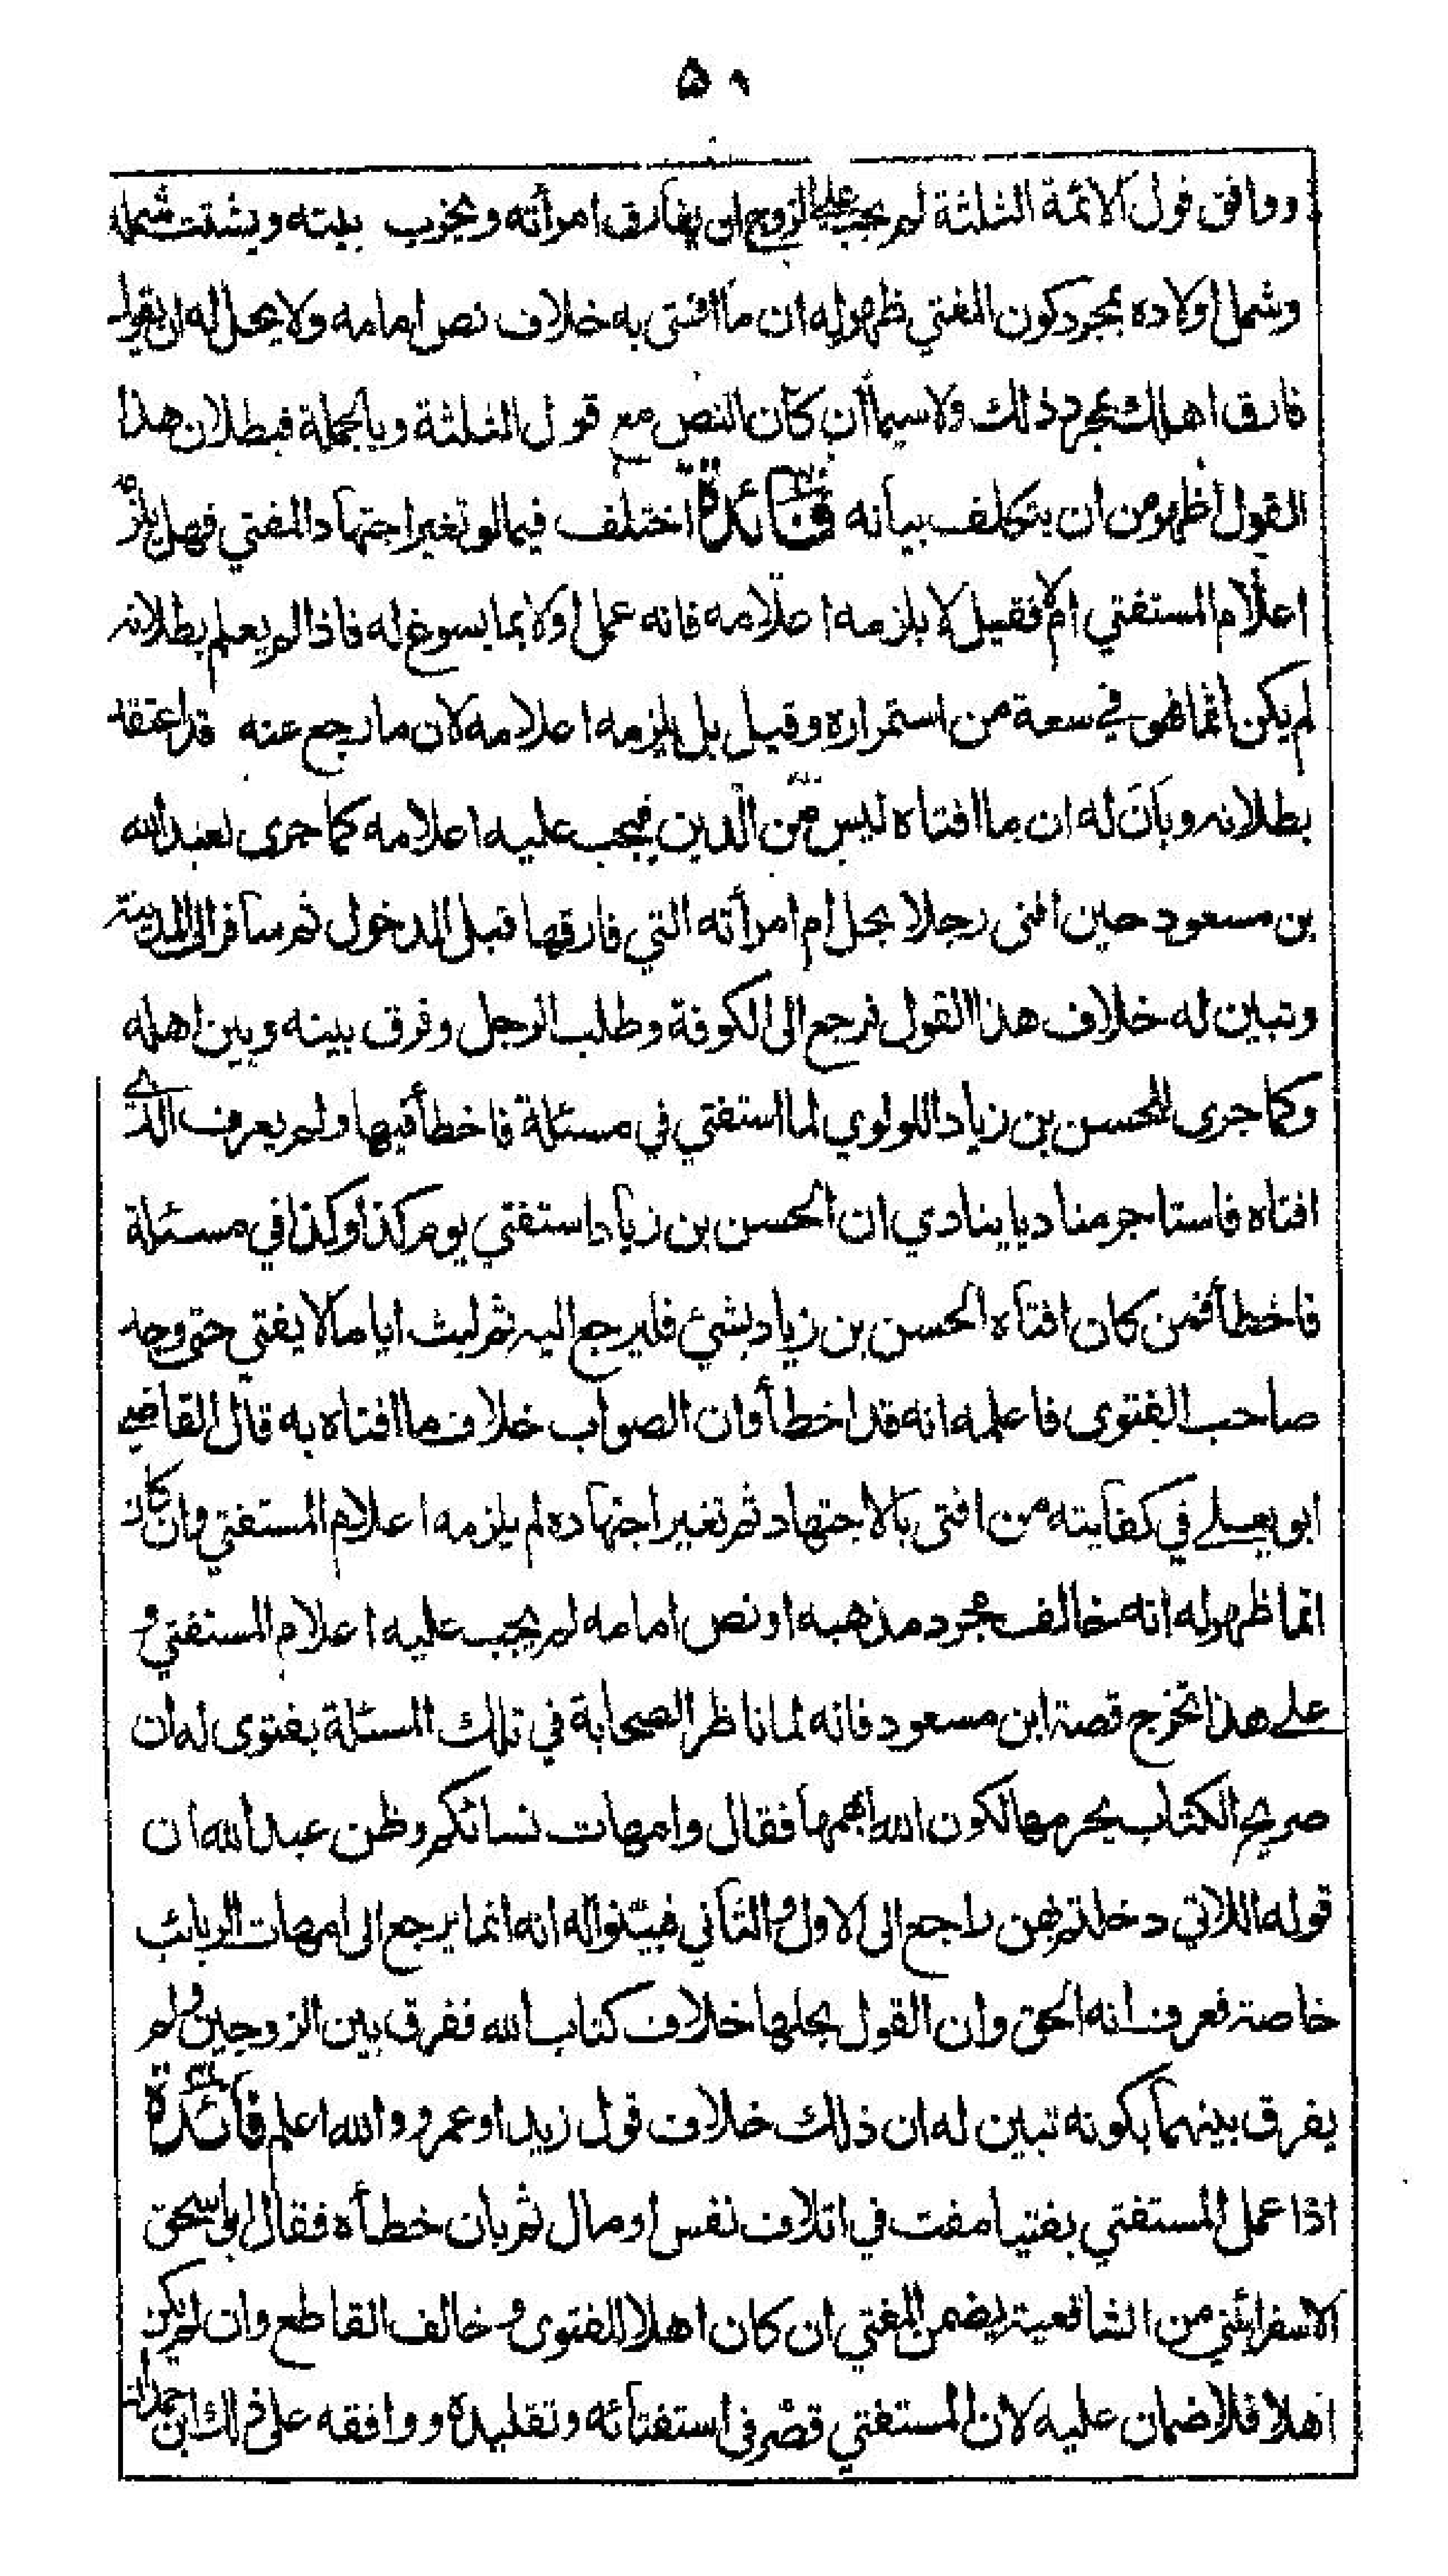 ٥١
ووافق قول الائمة الثلثة لم يجب على الزوج ان يفارق امرأته ويخرب بيته ويشتت شمله
وشمل اولاده بمجرد كون المفتي ظهر له ان ما افتى به خلاف نص امامه ولا يحل له ان يقول
فارق اهلك بمجرد ذلك ولا سيما ان كان النص مع قول الثلثة وبالجملة فبطلان هذا
القول اظهر من ان يتكلف بيانه فائدة اختلف فيما لو تغير اجتهاد المفتي فهل يلزمه
اعلام المستفتي ام لا فقيل لا يلزمه اعلامه فانه عمل اولا بما يسوغ له فاذا لم يعلم بطلانه
لم يكن اثما فهو في سعة من استمراره وقيل بل يلزمه اعلامه لان ما رجع عنه قد اعتقد
بطلانه وبان له ان ما افتاه ليس من الدين فيجب عليه اعلامه كما جرى لعبد الله
بن مسعود حين افتى رجلا بحل ام امرأته التي فارقها قبل الدخول ثم سافر الى المدينة
وتبين له خلاف هذا القول فرجع الى الكوفة وطلب الرجل وفرق بينه وبين اهله
وكما جرى للحسن بن زياد اللولوي لما استفتي في مسئلة فاخطأ فيها ولم يعرف الذي
افتاه فاستاجر مناديا ينادي ان الحسن بن زياد استفتي يوم كذا وكذا في مسئلة
فاخطأ فمن كان افتاه الحسن بن زياد بشئ فليرجع اليه ثم لبث اياما لا يفتي حتى وجد
صاحب الفتوى فاعلمه انه قد اخطأ وان الصواب خلاف ما افتاه به قال القاضي
ابو يعلى في كفايته من افتى بالاجتهاد ثم تغير اجتهاده لم يلزمه اعلام المستفتي وان كان
انما ظهر له انه مخالف مجرد مذهبه او نص امامه لم يجب عليه اعلام المستفتي و
على هذا تخرج قصة ابن مسعود فانه لما ناظر الصحابة في تلك المسئلة بفتوى له ان
صريح الكتاب يحرمها لكون الله ابهمها فقال وامهات نسائكم وظن عبد الله ان
قوله اللاتي دخلتم بهن راجع الى الاول والثاني فبينوا له انه انما يرجع الى امهات الربائب
خاصة فعرف انه الحق وان القول بحلها خلاف كتاب الله ففرق بين الزوجين ولم
يفرق بينهما بكونه تبين له ان ذلك خلاف قول زيد او عمرو والله اعلم فائدة
اذا عمل المستفتي بفتيا مفت في اتلاف نفس او مال ثم بان خطأه فقال ابو اسحق
الاسفرائني من الشافعية يضمن المفتي ان كان اهلا للفتوى وخالف القاطع وان لم يكن
اهلا فلا ضمان عليه لان المستفتي قصر في استفتائه وتقليده ووافقه على ذلك ابن حمدان